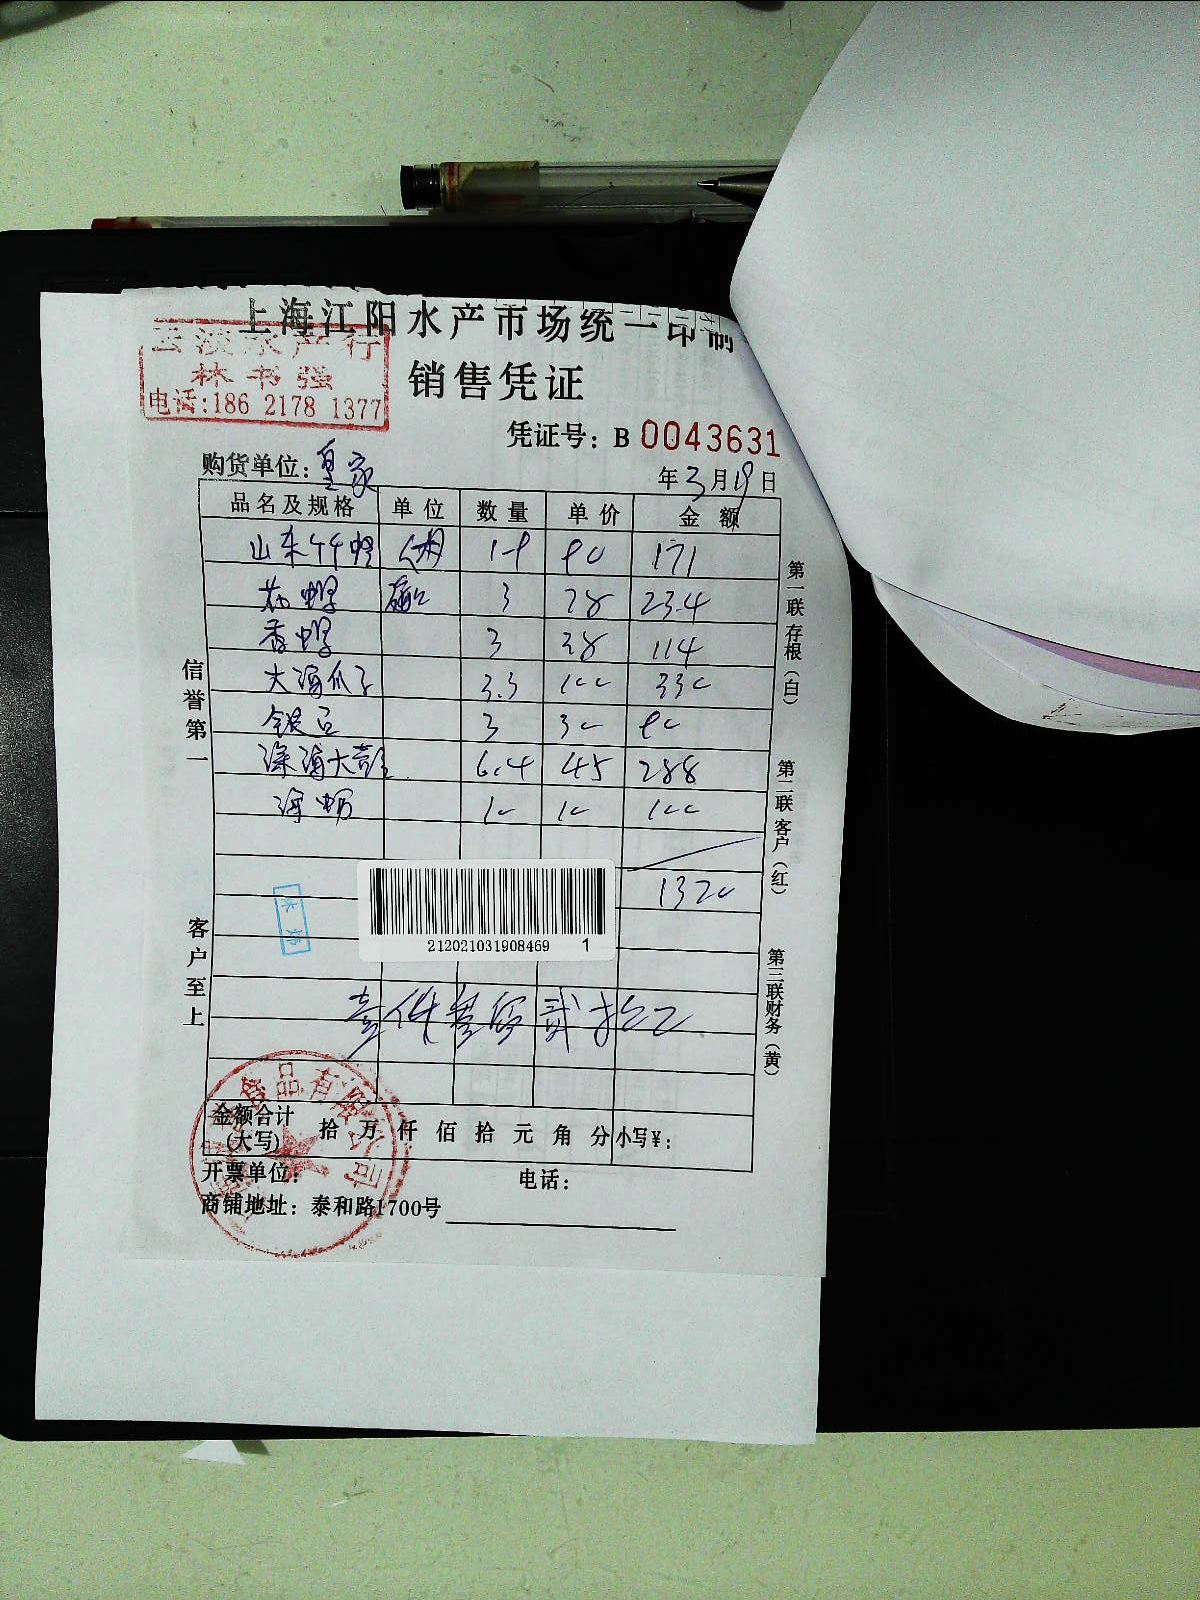 上海江阳水产市场统一印制
林书强
电话:186 2178 1377
销售凭证
凭证号: B 0043631
购货单位: 皇家
年 3 月 19 日
品名及规格 单位 数量 单价 金额
山东 171
3 78 234
香螺 3 38 114
大海瓜子 3.3 100 330
银 3 30 90
深海大 6.4 45 288
海 10 10 100
1320
212021031908469 1
壹仟叁佰贰拾元
金额合计
(大写) 拾 万 仟 佰 拾 元 角 分 小写¥:
开票单位: 电话:
商铺地址: 泰和路1700号
信誉第一
客户至上
第一联存根(白)
第二联客户(红)
第三联财务(黄)
食品有限公司